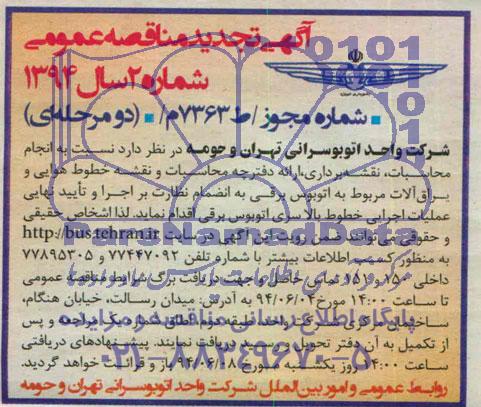 آگهی تجدید مناقصه عمومی
شماره ۲ سال ۱۳۹۴
شماره مجوز /ط۷۳۶۳م/ (دو مرحله‌ای)
شرکت واحد اتوبوسرانی تهران و حومه در نظر دارد نسبت به انجام
محاسبات، نقشه‌برداری، ارائه دفترچه محاسبات و نقشه خطوط هوایی و
یراق‌آلات مربوط به اتوبوس برقی به انضمام نظارت بر اجرا و تأیید نهایی
عملیات اجرایی خطوط بالاسری اتوبوس برقی اقدام نماید. لذا اشخاص حقیقی
و حقوقی می‌توانند ضمن رویت این آگهی در سایت http://bus.tehran.ir
به منظور کسب اطلاعات بیشتر با شماره تلفن ۷۷۴۴۷۰۹۲ و ۷۷۸۹۵۳۰۵
داخلی ۱۵۰ و ۱۵۱ تماس حاصل و جهت دریافت برگ شرایط مناقصه عمومی
تا ساعت ۱۴:۰۰ مورخ ۹۴/۰۶/۰۴ به آدرس: میدان رسالت، خیابان هنگام،
ساختمان مرکزی شرکت واحد، طبقه دوم، اطاق شماره یک مراجعه و پس
از تکمیل به آن دفتر تحویل و رسید دریافت نمایند. پیشنهادهای دریافتی
ساعت ۱۴:۰۰ روز یکشنبه مورخ ۹۴/۰۶/۰۸ باز و قرائت خواهد گردید.
روابط عمومی و امور بین‌الملل شرکت واحد اتوبوسرانی تهران و حومه
ParsNamadData
پایگاه اطلاع رسانی مناقصه و مزایده
۰۲۱-۸۸۳۴۹۶۷۰-۵